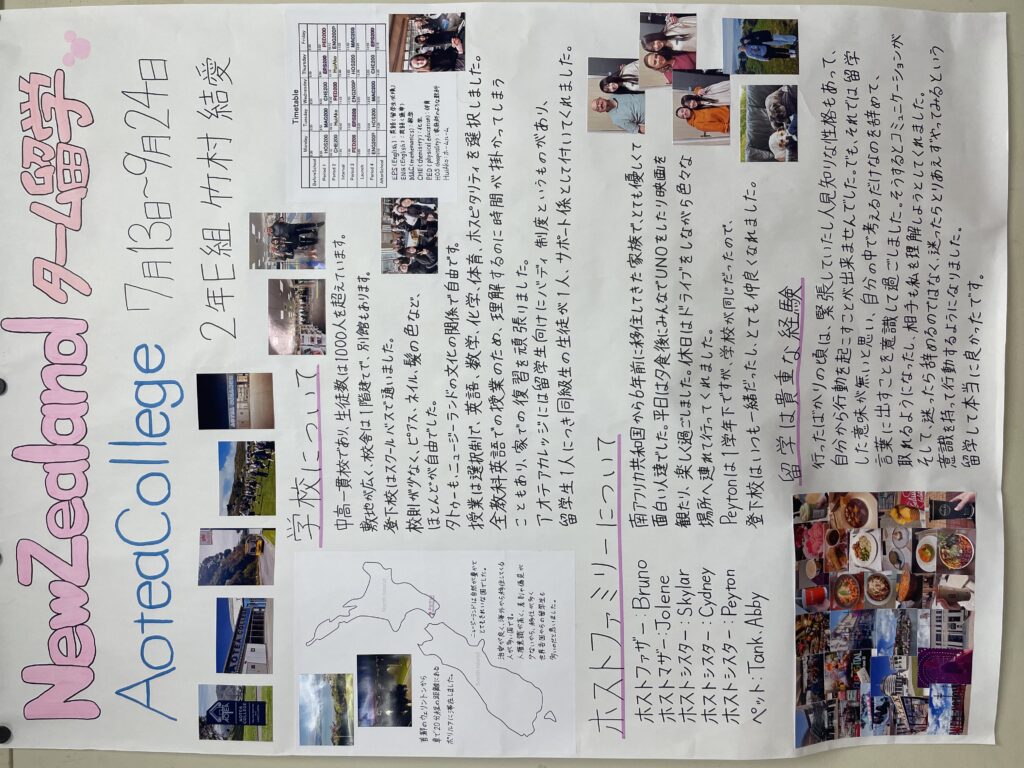 NewZealand ターム留学
AoteaCollege 7月13日〜9月24日
2年E組 竹村 結愛
学校について
中高一貫校であり、生徒数は1000人を超えています。
敷地が広く、校舎は1階建てで、別館もあります。
登下校はスクールバスで通いました。
校則が少なく、ピアス、ネイル、髪の色など、
ほとんどが自由でした。
タトゥーも、ニュージーランドの文化の関係で自由です。
授業は選択制で、英語、数学、化学、体育、ホスピタリティを選択しました。
全教科英語での授業のため、理解するのに時間が掛かってしまう
こともあり、家での復習を頑張りました。
アオテアカレッジには留学生向けにバディ制度というものがあり、
留学生1人につき同級生の生徒が1人、サポート係として付いてくれました。
Timetable
Monday Tuesday Wednesday Thursday Friday
Before School
Period 1
Period 2
Interval
Period 3
Lunch
Period 4
Afterschool
MAC(mathematics):数学
CHE(chemistry):化学
PED(physical education):体育
ニュージーランドは自然が豊かで
とてもきれいな国でした。
首都のウェリントンから
車で20分程の距離にある
ポリルアに滞在しました。
ホストファミリーについて
ホストファザー:Bruno
ホストマザー:Jolene
ホストシスター:Skylar
ホストシスター:Cydney
ホストシスター:Peyton
ペット:Tank.Abby
南アフリカ共和国から6年前に移住してきた家族で、とても優しくて
面白い人達でした。平日は夕食後にみんなでUNOをしたり映画を
観たり、楽しく過ごしました。休日はドライブをしながら色々な
場所へ連れて行ってくれました。
Peytonは1学年下ですが、学校が同じだったので、
登下校はいつも一緒だったし、とても仲良くなれました。
留学は貴重な経験
行ったばかりの頃は、緊張していたし人見知りな性格もあって、
自分から行動を起こすことが出来ませんでした。でも、それでは留学
した意味が無いと思い、自分の中で考えるだけなのを辞めて、
言葉に出すことを意識して過ごしました。そうするとコミュニケーションが
取れるようになったし、相手も私を理解しようとしてくれました。
そして迷ったら辞めるのではなく、迷ったらとりあえずやってみるという
意識を持て行動するようになりました。
留学して本当に良かったです。